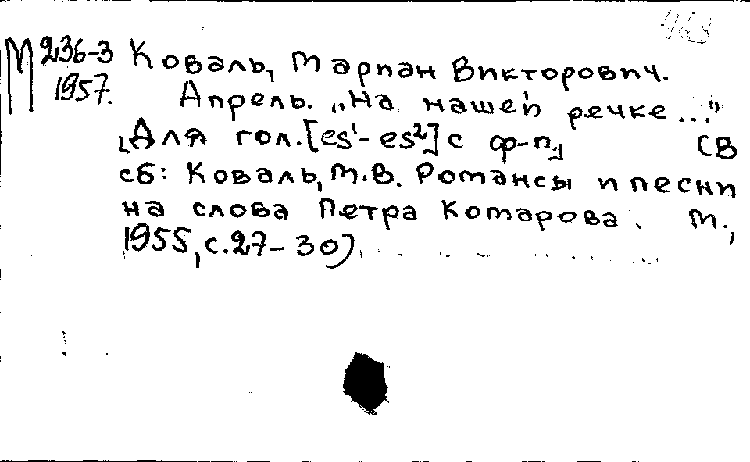 М 236-3 Коваль, Мариан Викторович.
1957. Апрель. „На нашей речке..."
[Для гол. [es¹-es²] с ф-п.] (В
сб: Коваль, М.В. Романсы и песни
на слова Петра Комарова. М.,
1955, с.27-30)